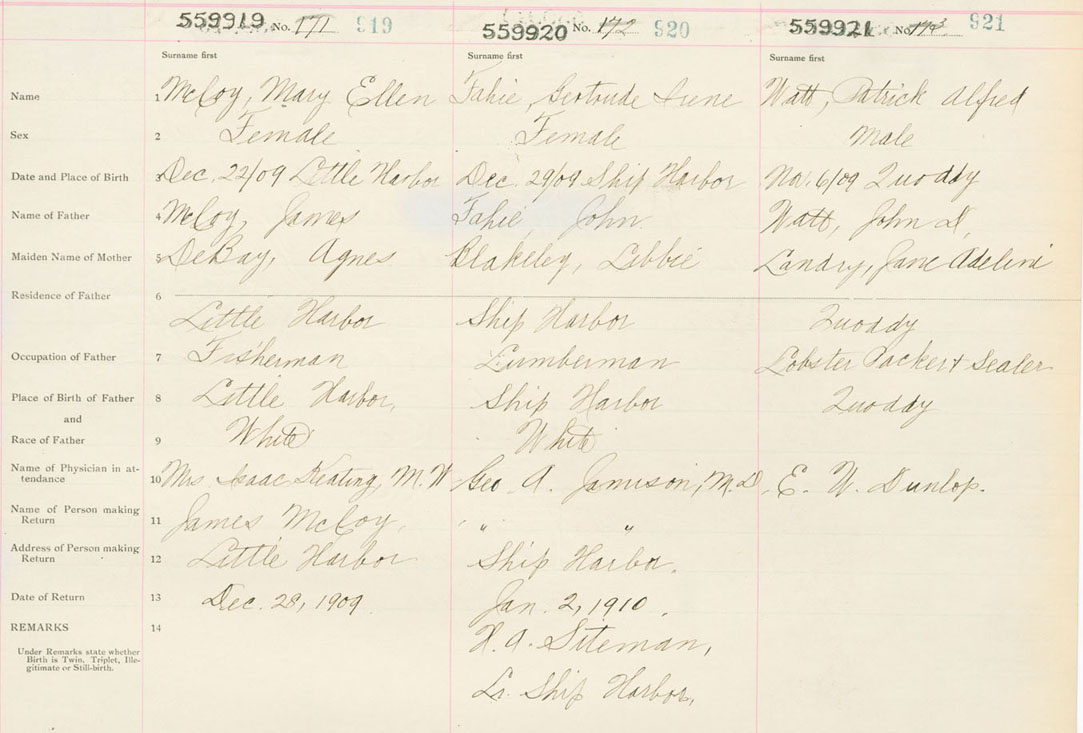 559919 No. 171 919 559920 No. 172 920 559921 No. 173 921
Surname first Surname first Surname first
Name 1 McCoy, Mary Ellen Fahie, Gertrude Irene Watt, Patrick Alfred
Sex 2 Female Female Male
Date and Place of Birth 3 Dec. 22/09 Little Harbor Dec. 29/09 Ship Harbor Nov. 6/09 Quoddy
Name of Father 4 McCoy, James Fahie, John Watt, John D.
Maiden Name of Mother 5 DeBay, Agnes Blakeley, Libbie Landry, Jane Adelini
Residence of Father 6
Little Harbor Ship Harbor Quoddy
Occupation of Father 7 Fisherman Lumberman Lobster Packer & Sealer
Place of Birth of Father 8 Little Harbor, Ship Harbor Quoddy
and
Race of Father 9 White White
Name of Physician in at-
tendance 10 Mrs Isaac Keating, M.W. Geo. A. Jamison, M.D. E. W. Dunlop.
Name of Person making
Return 11 James McCoy, " " "
Address of Person making
Return 12 Little Harbor Ship Harbor.
Date of Return 13 Dec. 28, 1909 Jan. 2, 1910.
REMARKS 14 H. A. Siteman,
Under Remarks state whether
Birth is Twin, Triplet, Ille-
gitimate or Still-birth.
Lr. Ship Harbor,